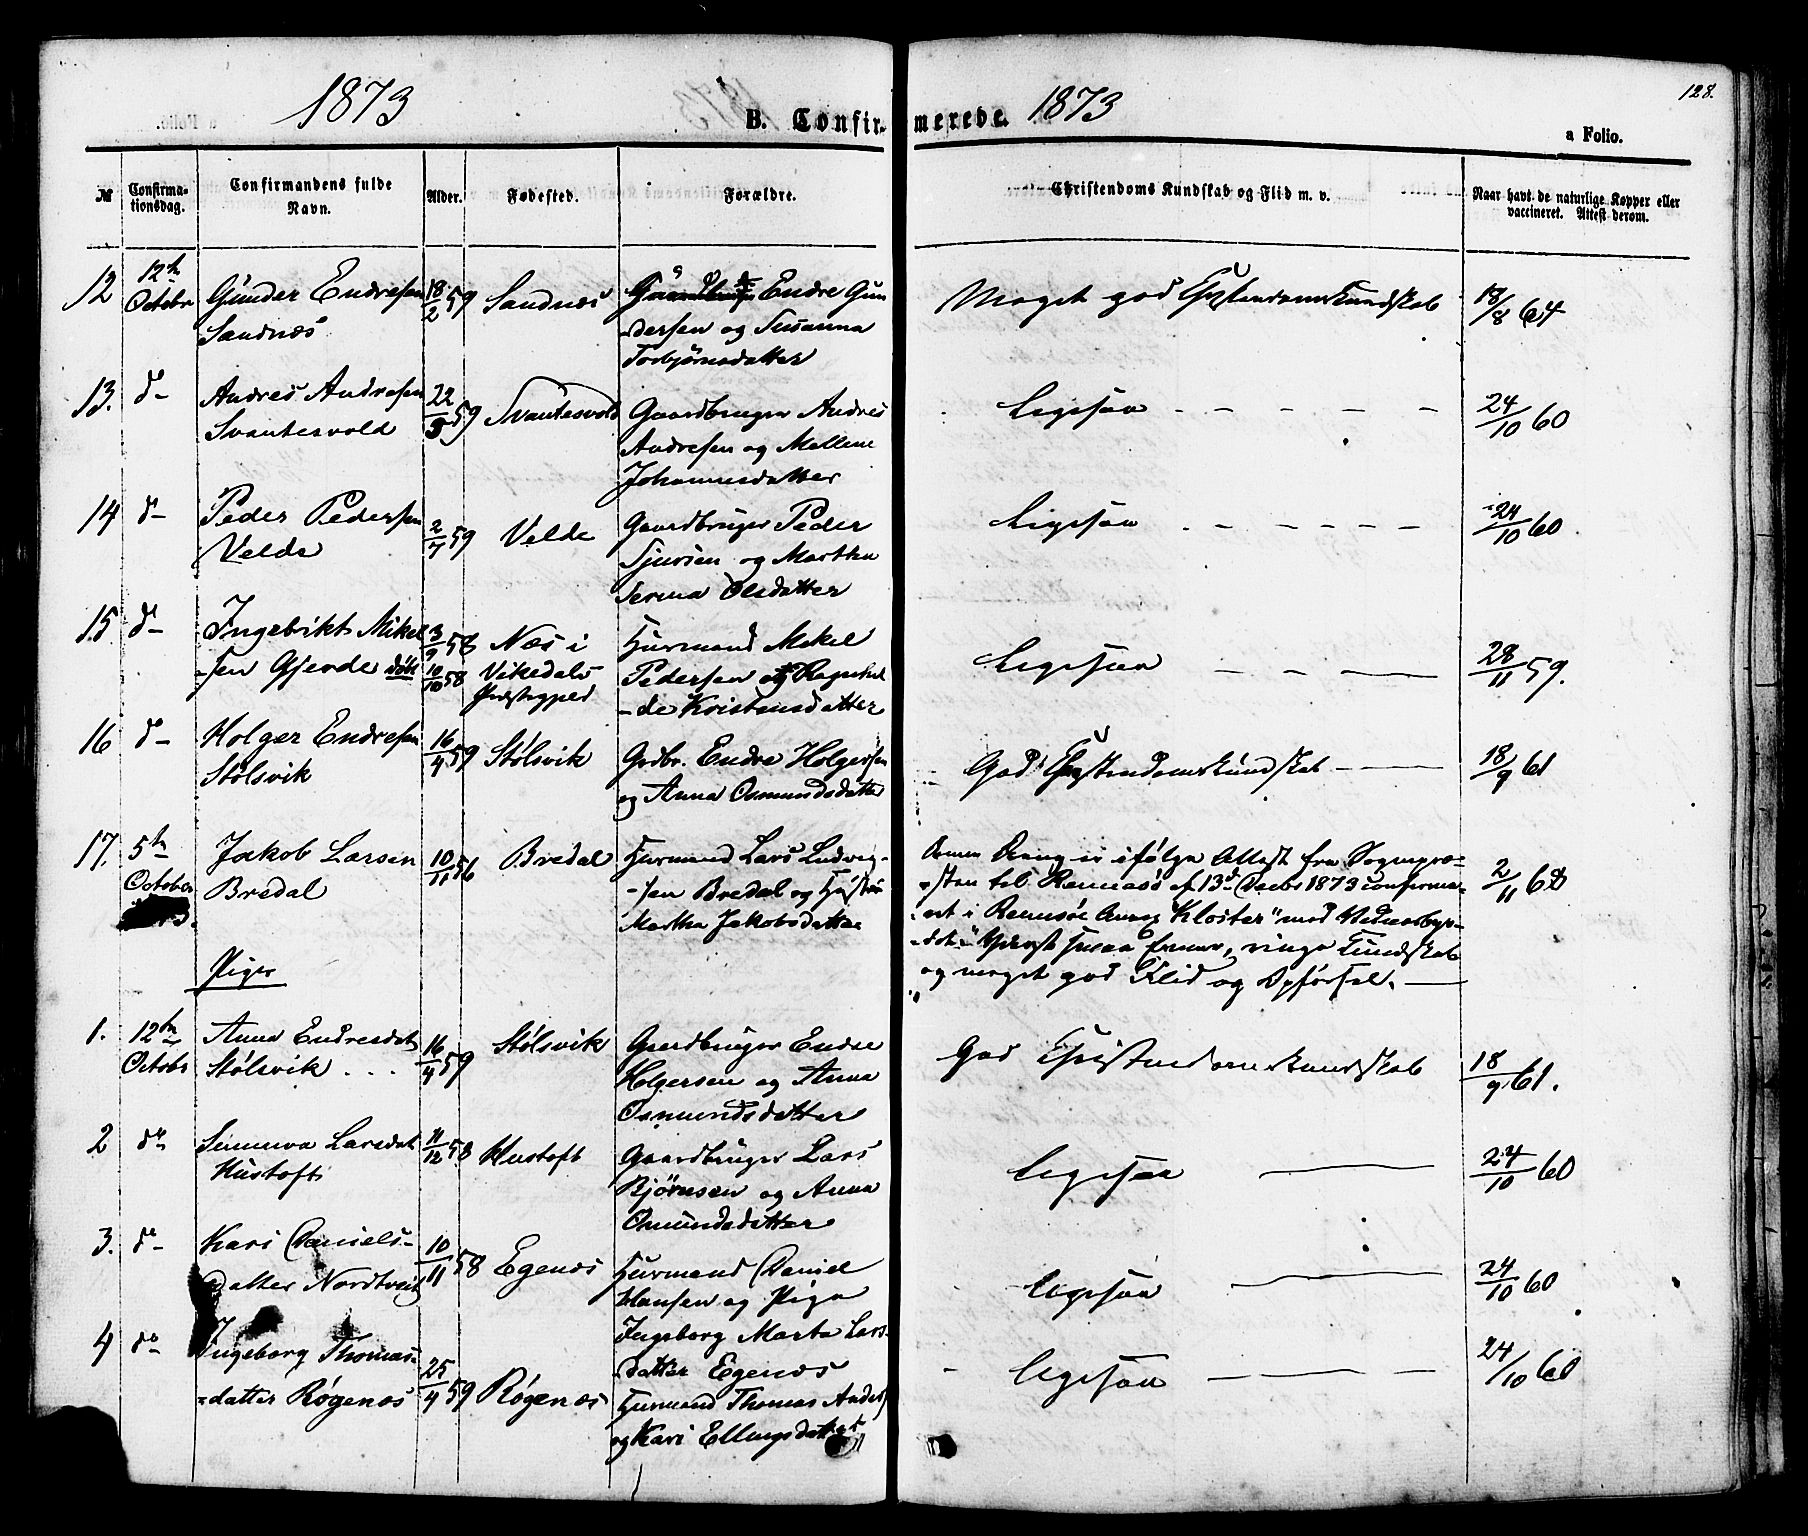 1873
B. Confirmerede. 1873
128.
a Folio.
№ Confirmationsdag. Confirmandens fulde Navn. Alder. Fødested. Forældre. Christendoms Kundskab og Flid m. v. Naar havt de naturlige Kopper eller vaccineret. Attest derom.
12 12te Gunder Endresen 18/2 59 Sandnæs Endre Gun- Meget god Christendomskundskab 18/8 64
Octobr Sandnæs dersen og Susanna
Torbjørnsdatter
13. do Andres Andresen 22/5 59 Svantesvold Gaardbruger Andres Ligesaa 24/10 60
Svantesvold Andresen og Mallene
Johannesdatter
14 do Peder Pedersen 2/7 59 Velde Gaardbruger Peder Ligesaa 24/10 60
Velde Sjursen og Martha
Serina Olsdatter
15 do Ingebrikt Mikel- 3/9 58 Næs i Huusmand Mikel Ligesaa 28/11 59.
sen Gjerde døbt 10/10 58 Vikedals Pedersen og Ragnhil-
Præstegjeld de Kristensdatter
16 do Holger Endresen 16/4 59 Stølsvik Grdbr. Endre Holgersen God Christendomskundskab 18/9 61
Stølsvik og Anna Osmundsdatter
17. 5te Jakob Larsen 10/11 56 Bredal Huusmand Lars Ludvig- Denne Dreng er ifølge Attest fra Sognepræ- 2/11 60
October Bredal sen Bredal og Hustru sten til Rennesø af 13de Decbr 1873 confirme-
Martha Jakobsdatter ret i Rennesøe Annex "Kloster" med Vidnesbyr-
det: ringe Kundskab
Piger og meget god Flid og Opførsel.
1. 12te Anna Endresdat 16/4 59 Stølsvik Gaardbruger Endre God Christendomskundskab 18/9 61.
Octobr Stølsvik . . . Holgersen og Anna
Osmundsdatter
2 do Sunniva Larsdat 11/12 58 Hustoft Gaardbruger Lars Ligesaa 24/10 60
Hustoft Bjørnsen og Anna
Omundsdatter
3. do Kari Daniels- 10/11 58 Egenæs Huusmand Daniel Ligesaa 24/10 60
datter Nordtveit Hansen og Pige
Ingeborg Marta Lars-
4 do Ingeborg Thomas- 25/4 59 Røgenæs datter Egenæs Ligesaa 24/10 60
datter Røgenæs Huusmand Thomas
og Kari Ellingsdatter